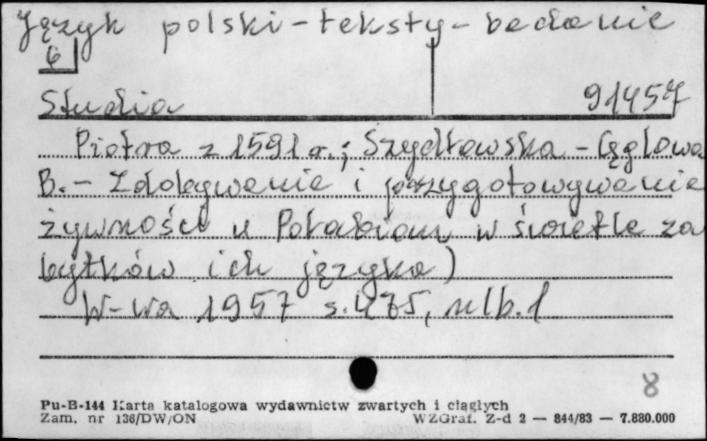 Język polski - teksty - badanie
6
Studia 91457
Piotra z 1591 r.; Szydłowska - Ceglowa
B. - Zdobywanie i przygotowywanie
żywności u Połabian w świetle za
bytków ich języka)
W-wa 1957 s. 475, nlb. 1
8
Pu-B-144 Karta katalogowa wydawnictw zwartych i ciągłych
Zam. nr 136/DW/ON WZGraf. Z-d 2 — 844/83 — 7.880.000